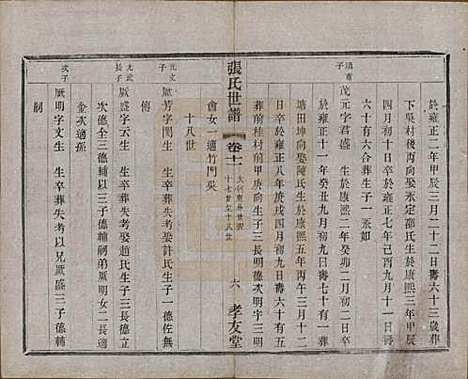 於雍正二年甲辰三月二十二日壽六十三歲葬
下吳村後丙向娶永定鄒氏生於康熙三年甲辰
四月初十日卒於雍正七年己酉九月十一日壽
六十有六合葬生子一永如
瑞甫子
茂元字君盛 生於康熙二年癸卯二月初二日
卒於雍正十一年癸丑九月初一日壽七十一葬
塘田坤向娶陳氏生於康熙五年丙午三月十二
日卒於雍正八年庚戌四月初九日壽六十有五
葬前桂村前甲庚向生子三長德次明三
張氏世譜
卷十一
大
十七世至十八世
六
孝友堂
會女一適竹門吳
十八世
允文子
厥芳字聞生 生卒葬失考娶許氏生子一德佐無
傳
允武長子
厥盛字云生 生卒葬失考娶趙氏生子三長德
次德全三德輔以三子德輔嗣弟厥明女二長適
金次適孫
次子
厥明字文生 生卒葬失考以兄厥盛三子德輔
嗣